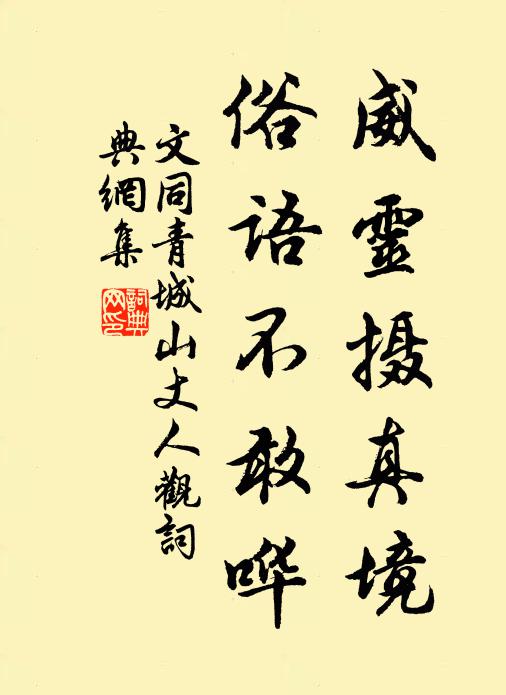 威靈摄真境
俗語不敢哗
文同青城山丈人觀詞
典網集
詞典
网印